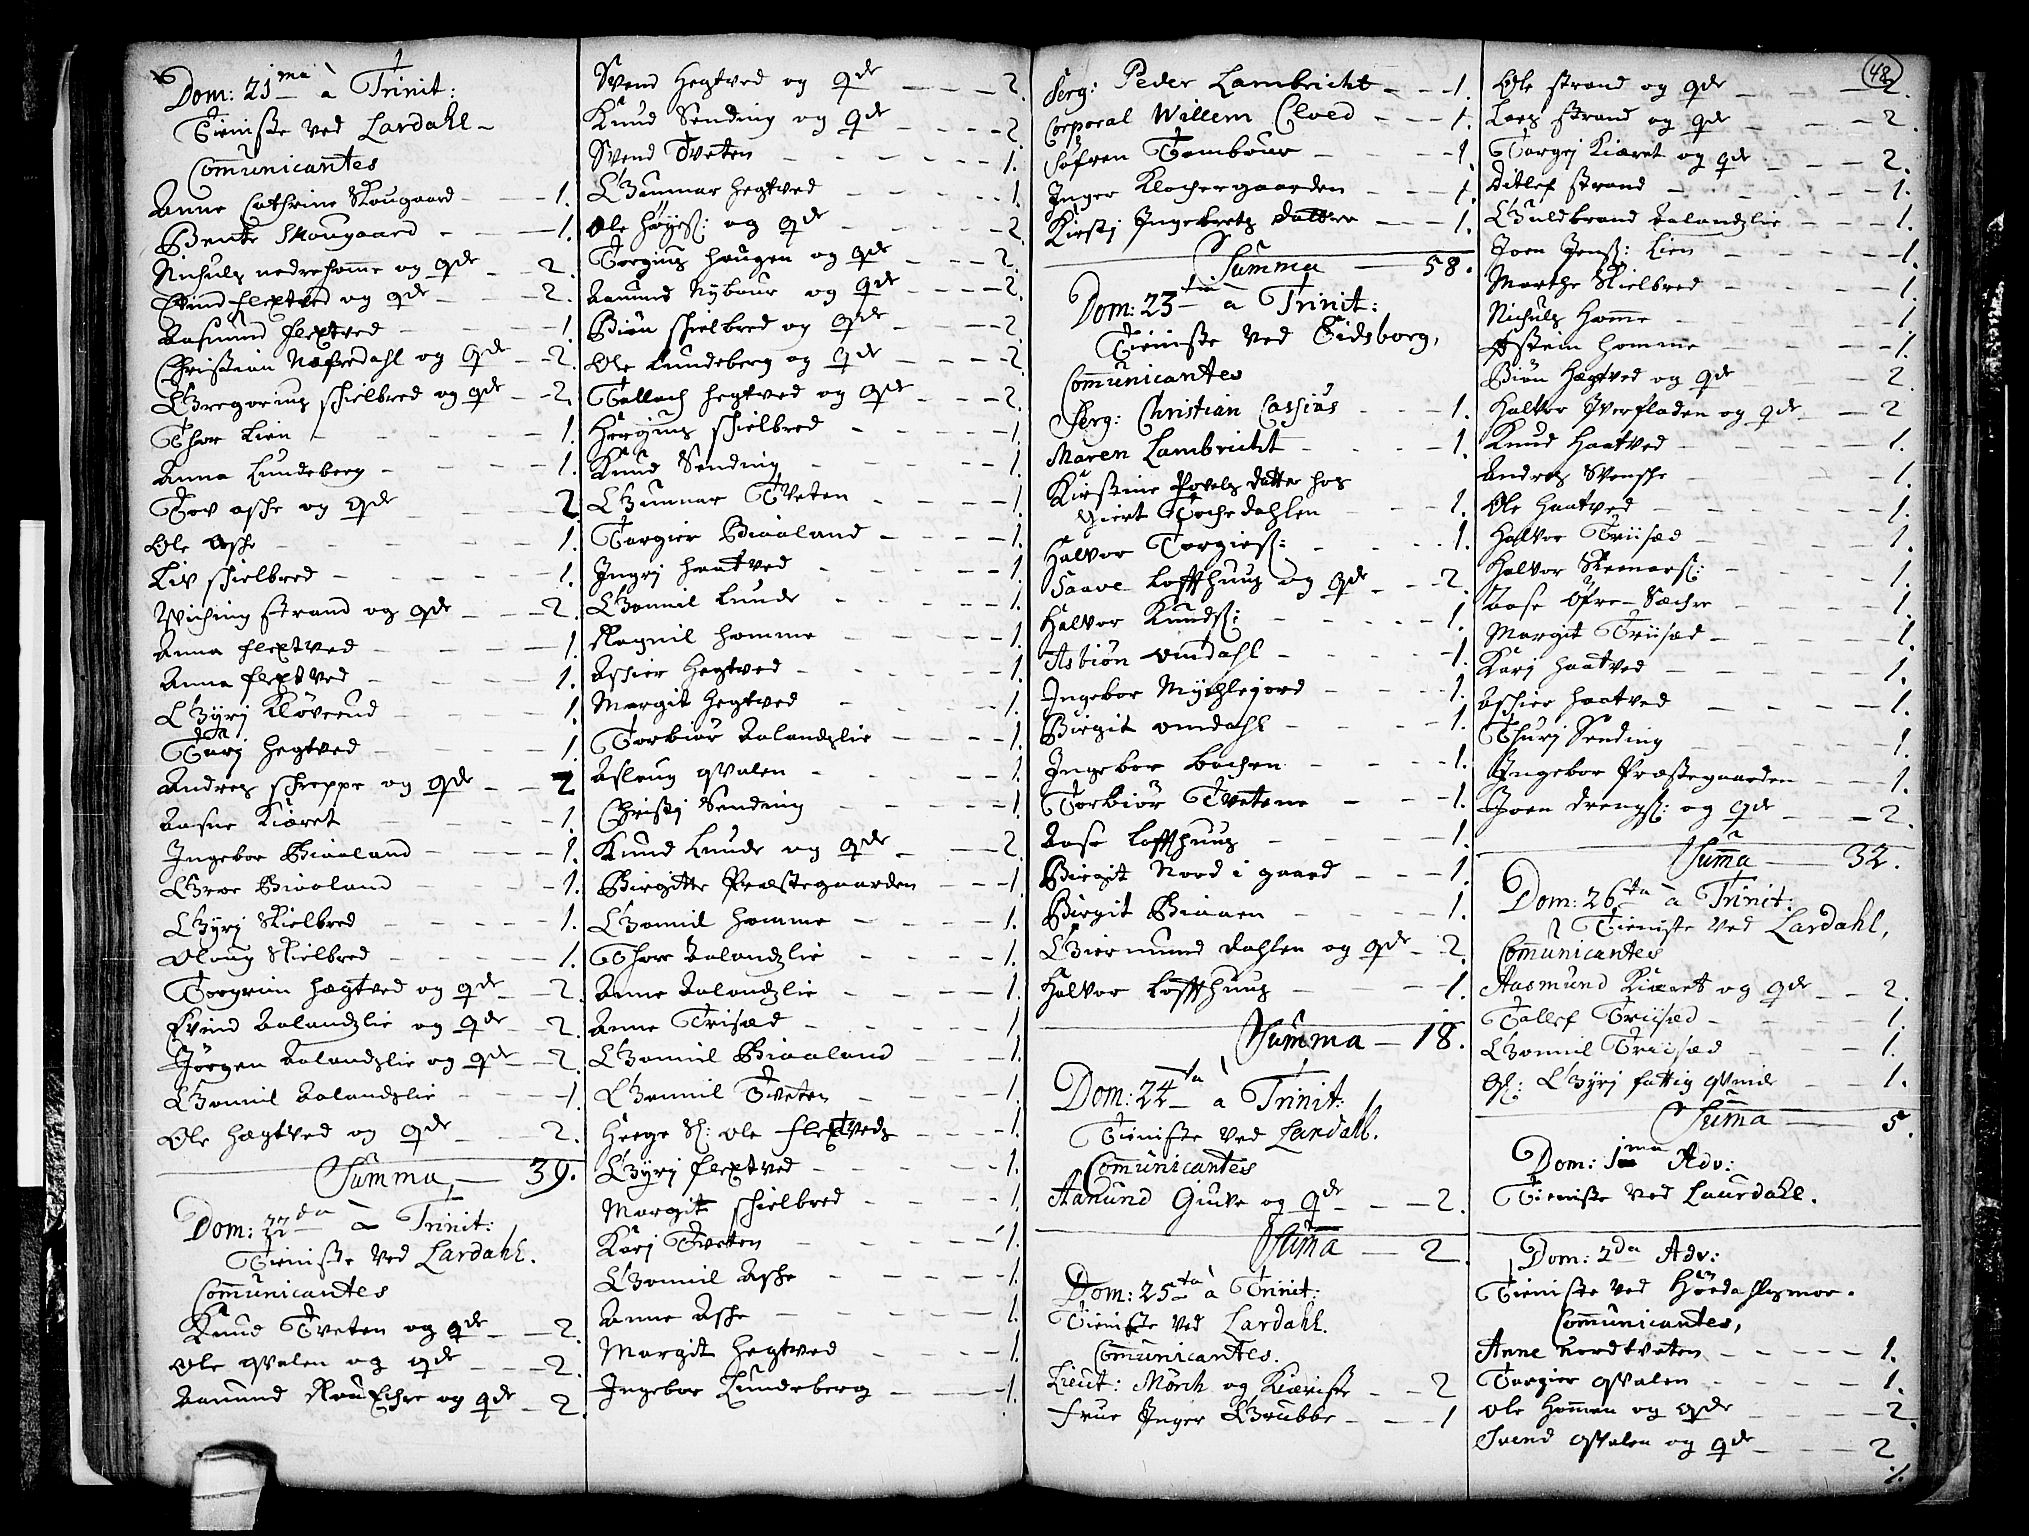 Dom: 21ma à Trinit:
Tieniste ved Lardahl
Communicantes
Anne Cathrine Skougaard - 1.
Bente Skougaard - 1.
Nichuls nedrehomme og Qde - 2.
Eivind flextved og qde - 2.
Aasmund flextved - 1
Christian Næfredahl og Qde - 2.
Gregorius skielbred og qde - 2.
Thor Lien - 1.
Anna Lundeberg - 1.
Tov aske og Qde - 2
Ole Aske - 1.
Liv skielbred - 1.
Wiching strand og qde - 2.
Anna flextved - 1.
Anna flextved - 1.
Gyrj Kløverud - 1.
Turj hegtved - 1
Andres skreppe og Qde - 2
Aasne Kiæret - 1
Ingebor Biaaland - 1.
Groe Biaaland - 1.
Gyrj Skielbred - 1.
Oloug Skielbred - 1.
Torgrim hægtved og qde - 2.
Evind Aalandslie og Qde - 2.
Jørgen Aalandslie og Qde - 2.
Gonnil Aalandslie - 1.
Ole hægtved og Qde - 2.
Summa - 39.
Dom: 22da à Trinit:
Tieniste ved Lardahl.
Communicantes
Knud Tveten og qde - 2.
Ole qvalen og qde - 2.
Aanund og qde - 2.
Svend hegtved og Qde - 2.
Knud Sending og Qde - 2
Svend Tveten - 1.
Gunnar hegtved - 1.
Ole høyes: og Qde - 2
Torgius haugen og Qde - 2.
Aanund Nybuur og Qde - 2.
Biøn skielbred og Qde - 2
Ole Lundeberg og Qde - 2
Tallach hegtved og Qde - 2.
Hergius skielbred - 1
Knud Sending - 1
Gunnar Tveten - 1
Torgier Biaaland - 1.
Ingrj haatved - 1
Gonnil Lunde - 1
Ragnil homme - 1
Askier hegtved - 1
Margit hegtved - 1.
Torbiør Aalandslie - 1
Aslaug qvalen - 1
Christj Sending - 1
Knud Lunde og Qde - 2.
Birgitte Præstegaarden - 1
Gonnil homme - 1.
Thore Aalandslie - 1.
Anne Aalandslie - 1.
Anne Trisæd - 1
Gonnil Biaaland - 1.
Gonnil Tveten - 1.
Hege Sl: ole flextveds - 1.
Gyrj flextved - 1.
Margit skielbred - 1
Karj Tveten - 1.
Gonnil Aske - 1
Anne Aske - 1.
Margit hegtved - 1.
Ingebor Lundeberg - 1.
Serg: Peder Lambricht - 1.
Corporal Willem Cloed - 1.
Søfren Tambour - 1
Inger Klochergaarden - 1.
Kirstj Ingebrets datter - 1.
Summa - 58.
Dom: 23tia à Trinit:
Tieniste ved Eidsborg.
Communicantes
Serg: Christian Cassius - 1.
Maren Lambricht - 1.
Kirstine Povels datter hos
giert Tochedahlen - 1.
Halvor Torgies: - 1.
Saave Loffthuus og Qde - 2.
Halvor Knuds: - 1
Asbiøn omdahl - 1.
Ingebor Mychlejord - 1.
Birgit omdahl - 1
Ingebor bachen - 1.
Torbiør Tvetene - 1.
Aase Loffthuus - 1.
Birgit Nord i gaard - 1.
Birgit Biaaen - 1.
Giermund dahlen og Qde - 2.
Halvor Loffthuus - 1.
Summa - 18.
Dom: 24ta à Trinit:
Tieniste ved Lardahl.
Communicantes
Aanund Giuve og Qde - 2.
Suma - 2
Dom: 25ta à Trinit:
Tieniste ved Lardahl.
Communicantes.
Lieut: Mørch og Kiæriste - 2
Frue Inger Grubbe - 1
48
Ole strand og Qde - 2.
Lars strand og Qde - 2.
Torgrj Kiæret og qde - 2.
Ditlef strand - 1.
Guldbrand Aalandslie - 1.
Joen Jens: Lien - 1.
Marthe Skielbred - 1
Nichuls Homme - 1
Østein homme - 1.
Biøn Hægtved og Qde - 2.
Halvor Överfladen og qde - 2
Knud haatved - 1.
Andres Svenske - 1.
Ole haatved - 1.
Halvor Triisæd - 1.
Halvor Steenars: - 1.
Aase Öfre-Sæchre - 1
Margit Triisæd - 1.
Karj haatved - 1.
Askier haatved - 1.
Thurj Sending - 1
Ingebor Præstegaarden - 1.
Joen drengs: og Qde - 2.
Summa - 32.
Dom: 26ta à Trinit:
Tieniste ved Lardahl,
Communicantes
Aasmund Kiæret og Qde - 2.
Tallef Triisæd - 1.
Gonnil Triisæd - 1.
Gl: Gyrj fattig qvinde - 1.
Suma - 5.
Dom: 1ma Adv:
Tieniste ved Laurdahl.
Dom: 2da Adv:
Tieniste ved Høidahlsmoe.
Communicantes,
Anne Nordtveten - 1.
Torgier qvalen - 1.
Ole Homman og Qde - 2.
Svend qvalen og qde - 2